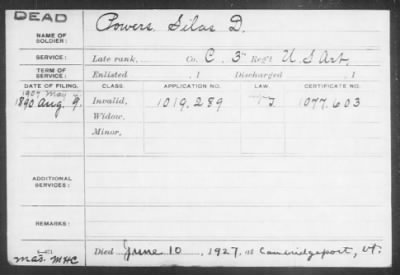 DEAD
NAME OF SOLDIER: Powers, Silas D.
SERVICE: Late rank, Co. C. 3" Reg't U S Art.
TERM OF SERVICE: Enlisted , 1 Discharged , 1
DATE OF FILING. CLASS. APPLICATION NO. LAW. CERTIFICATE NO.
1907 May
1890 Aug. 9. Invalid, 1019.289 1077.603
Widow,
Minor,
ADDITIONAL SERVICES:
REMARKS:
mas. MHC
Died June 10, 1927, at Cambridgeport, Vt.